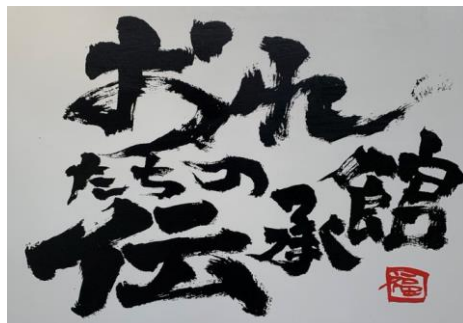 おれ
たちの
伝承館
福